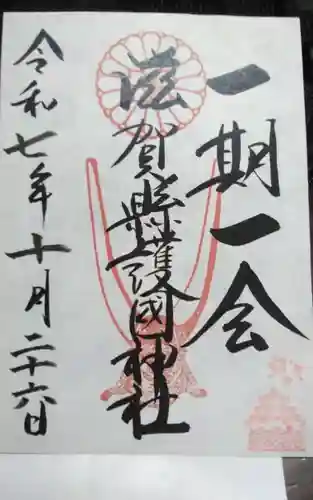 一期一会
滋賀縣護國神社
令和七年十月二十六日